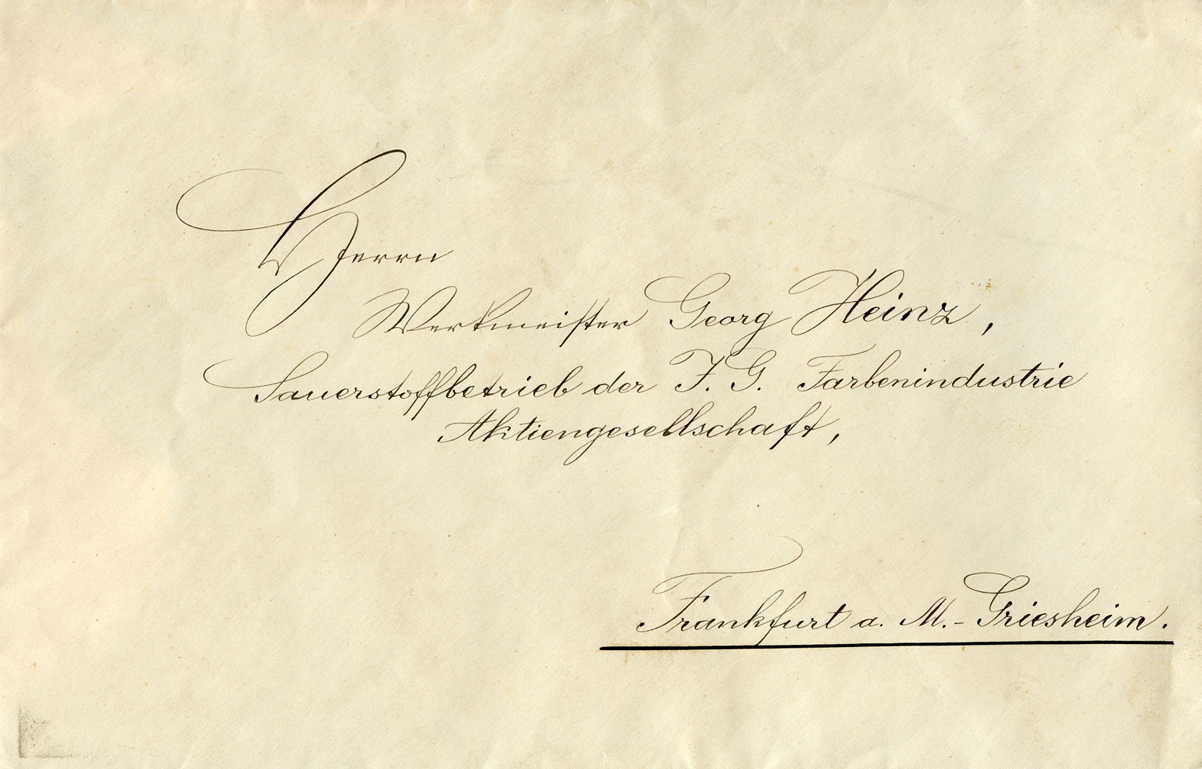 Herrn
Werkmeister Georg Heinz,
Sauerstoffbetrieb der I. G. Farbenindustrie
Aktiengesellschaft,
Frankfurt a. M.- Griesheim.